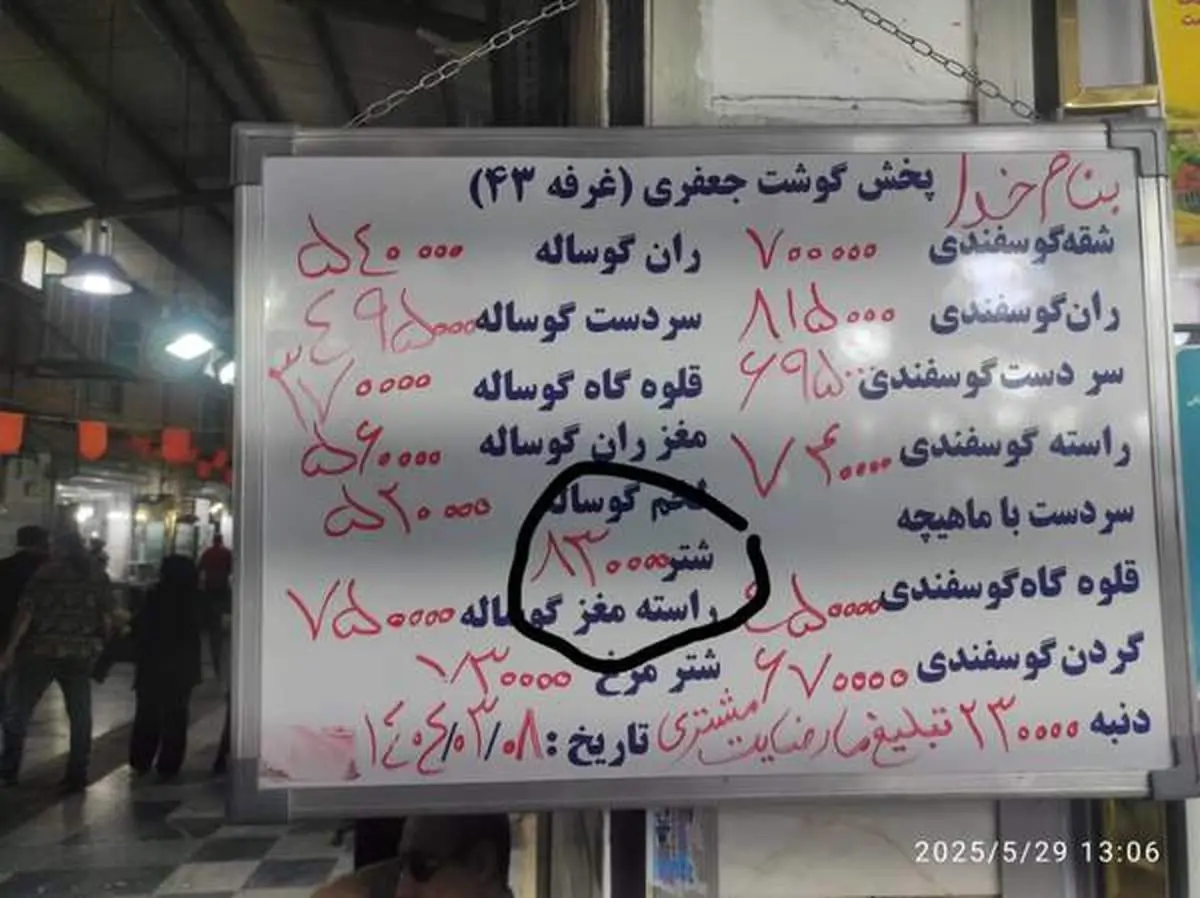 بنام خدا پخش گوشت جعفری (غرفه ۴۳)
شقه گوسفندی ۷۰۰۰۰۰ ران گوساله ۵۴۰۰۰۰
ران گوسفندی ۸۱۵۰۰۰ سردست گوساله ۴۹۵۰۰۰
سر دست گوسفندی ۶۹۵۰۰۰ قلوه گاه گوساله ۳۷۰۰۰۰
راسته گوسفندی ۷۴۰۰۰۰ مغز ران گوساله ۵۶۰۰۰۰
سردست با ماهیچه لخم گوساله ۵۲۰۰۰۰
شتر ۸۳۰۰۰۰
قلوه گاه گوسفندی راسته مغز گوساله ۷۵۰۰۰۰
گردن گوسفندی ۶۷۰۰۰۰ شتر مرغ
دنبه ۲۳۰۰۰۰ تبلیغ ما رضایت مشتری تاریخ : ۱۴۰۴/۰۳/۰۸
2025/5/29 13:06